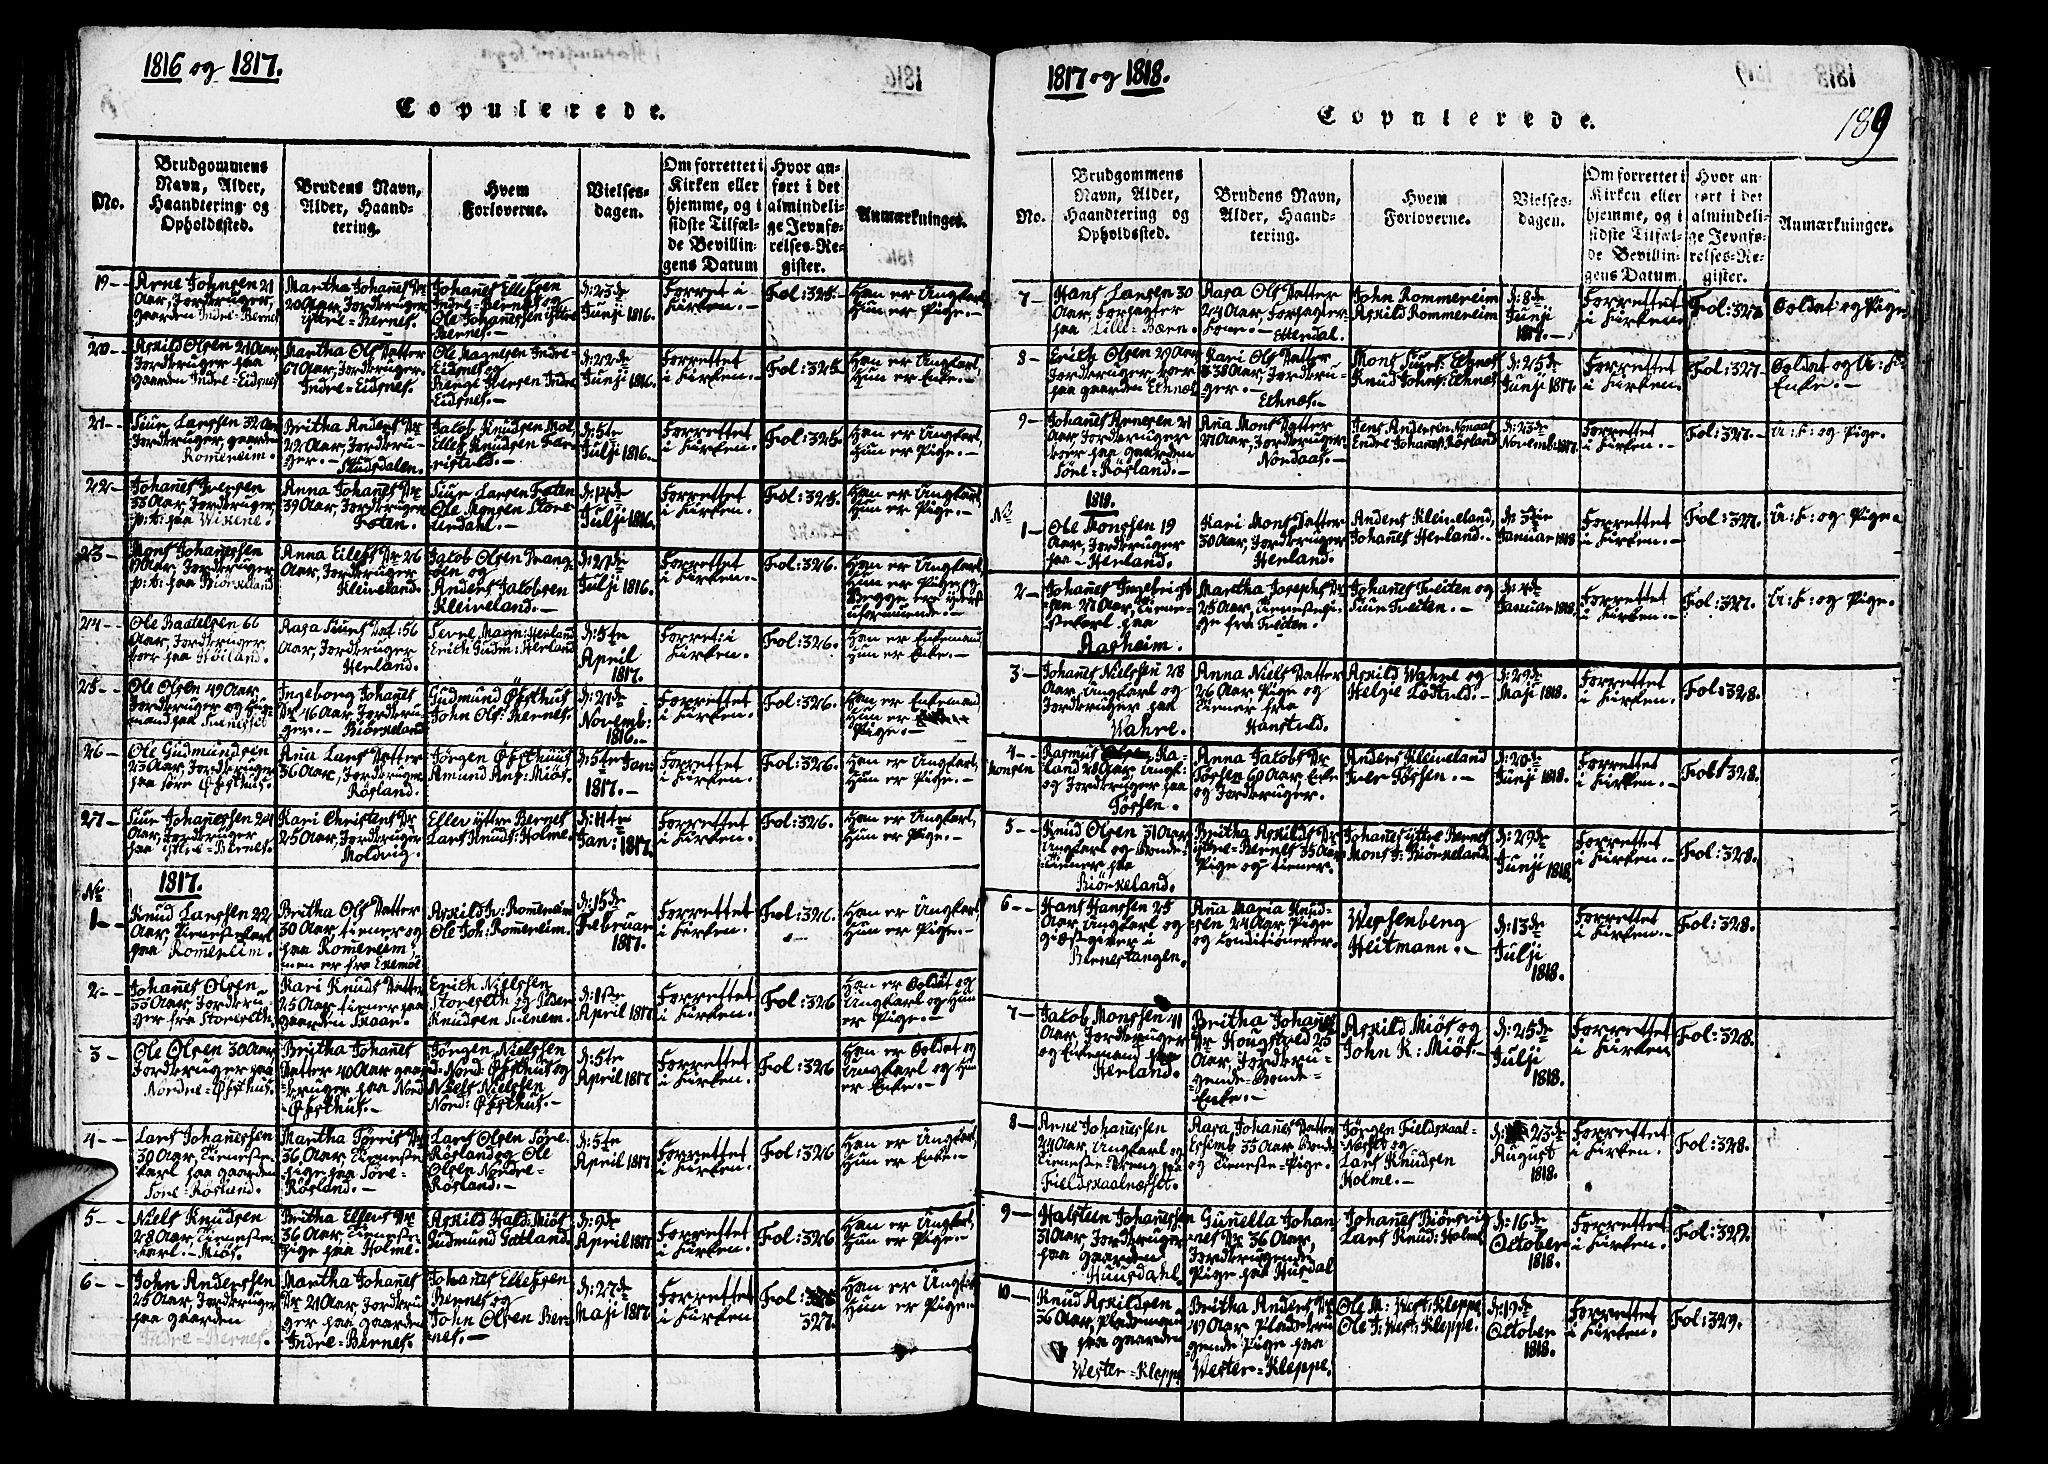 1816 og 1817.
Copulerede.
No.
Brudgommens Navn, Alder, Haandtering og Opholdssted.
Brudens Navn, Alder, Haandtering.
Hvem Forloverne.
Vielsesdagen.
Om forrettet i Kirken eller hjemme, og i sidste Tilfælde Bevillingens Datum
Hvor anført i det almindelige Jevnførelses-Register.
Anmærkninger.
19
Arne Johnsen 21
Aar, Jordbruger,
gaarden Indre-Bernes
Martha Johanes Dr
20 Aar, Jordbruger
yttre-Bernes.
Johanes Ellefsen
Indre-Bernes og
Ole Johanessen yttre
Bernes.
d: 23de
Junji 1816.
Forret i
Kirken.
Fol: 325.
Han er Ungkarl,
Hun er Pige.
20
Askild Olsen 21 Aar,
Jordbruger paa
gaarden Indre-Eidsnes
Martha Ols Datter
67 Aar, Jordbruger.
Indre-Eidsnes.
Ole Magnesen Indre-
Eidsnes og
Bange Iversen Indre
Eidsnes.
d: 22de
Junji 1816.
Forrettet
i Kirken.
Fol: 325.
Han er Ungkarl,
Hun er Enke.
21
Siur Larssen 32 Aar
Jordbruger, gaarden
Romereim.
Britha Anders Dr
22 Aar, Jordbruger.
Studsdalen.
Jakob Knudsen
Ellef Knudsen
d: 5te
Julji 1816.
Forrettet
i Kirken.
Fol: 325.
Han er Ungkarl,
Hun er Pige.
22
Johanes Iversen
33 Aar, Jordbruger
Wikene.
Anna Johanes Dr
39 Aar, Jordbruger
Foten.
Siur Larsen Foten
Ole Monsen Store-
Urdahl.
Julji 1816.
Forrettet
i Kirken.
Fol: 325.
Han er Ungkarl,
Hun er Pige.
23
Mons Johanessen
Aar, Jordbruger
paa Biörkeland
Anna Eilefs Dr 26
Aar, Jordbruger
Kleiveland.
Jakob Olsen
og
Anders Jakobsen
Kleiveland.
d: 27de
Julji 1816.
Forrettet
i Kirken.
Fol: 326.
Han er Ungkarl,
Hun er Pige og
Begge ere yderst
uformuende.
24
Ole Baatelsen 66
Aar, Jordbruger
boer paa Höiland.
Aasa Siurs Dat: 56
Aar, Jordbruger
Herland.
Sevel Magn: Herland
Erich Gudm: Herland
d: 5te
April
1817.
Forret: i
Kirken.
Fol: 326.
Han er Enkemand
Hun er Enke.
25
Ole Olsen 49 Aar,
Jordbruger og
Ingeborg Johanes
Dr 16 Aar, Jordbruger.
Biörkeland
Gudmund Öfsthus
John Ols: Bernes.
d: 27de
Novemb:
1816.
Forrettet
i Kirken.
Fol: 326.
Han er Enkemand
Hun er
Pige.
26
Ole Gudmundsen
23 Aar, Jordbruger
paa söre Öfsthus.
Ana Lars Datter
36 Aar, Jordbruger
Rösland.
Jörgen Öfsthuus
Amund Miös.
d: 5te Jan:
1817.
Forrettet
i Kirken.
Fol: 326.
Han er Ungkarl,
Hun er Pige.
27
Siur Johanessen 24
Aar, Jordbruger
paa yttre-Bernes.
Kari Christens Dr
25 Aar, Jordbruger
Moldvig.
Ellef yttre Bernes
Lars Knuds: Holme.
d: 11te
Jan: 1817.
Forrettet
i Kirken.
Fol: 326.
Han er Ungkarl,
Hun er Pige.
No
1817.
1
Knud Larssen 22
Aar, Tienestekarl
paa Romereim.
Britha Ols Datter
30 Aar tiener og
paa Romereim,
men er fra Exemöl
Askild Iv: Romereim
Ole Joh: Romereim.
d: 15de
Februar
1817.
Forrettet
i Kirken.
Fol: 326.
Han er Ungkarl,
Hun er Pige.
2
Johanes Olsen
33 Aar, Jordbruger
fra Storesæth.
Kari Knuds Datter
25 Aar tiener paa
gaarden Skaar.
Erich Nielssen
Storesæth og Peder
Knudsen
d: 1ste
April 1817
Forrettet
i Kirken.
Fol: 326
Han er Soldat og
Ungkarl og Hun
er Pige.
3
Ole Olsen 30 Aar
Jordbruger paa
Nordre-Öfsthus.
Britha Johanes
Datter 40 Aar gaardbruger
paa Nord-
Öfsthus.
Jörgen Nielssen
Nord: Öfsthus og
Niels Nielssen
Nord: Öfsthus.
d: 5te
April 1817
Forrettet
i Kirken.
Fol: 326
Han er Soldat og
Ungkarl og Hun
er Enke.
4
Lars Johanessen
30 Aar, Tienestekarl
paa gaarden
Söre-Rösland.
Martha Törris Dr
36 Aar, Tienestepige
paa Söre-
Rösland.
Lars Olsen Söre-
Rösland og Ole
Olsen Nordre-
Rösland.
d: 5te
April 1817
Forrettet
i Kirken.
Fol: 326
Han er Ungkarl,
Hun er Enke.
5
Niels Knudsen
28 Aar, Tienestekarl.
Miös.
Britha Ellefs Dr
36 Aar, Tienestepige
paa Holme.
Askild Hald: Miös
Gudmund Gotland.
d: 9de
April 1817
Forrettet
i Kirken.
Fol: 326
Han er Ungkarl,
Hun er Pige.
6
John Anderssen
25 Aar, Jordbruger
paa gaarden
Indre-Bernes.
Martha Johanes
Dr 21 Aar, Jordbruger
paa gaarden
Indre-Bernes.
Johanes Ellefsen
Bernes og
John Olsen Bernes.
d: 27de
Maji 1817
Forrettet
i Kirken
Fol:
327.
Han er Ungkarl
Hun er Pige.
1817 og 1818.
Copulerede.
189
No.
Brudgommens Navn, Alder, Haandtering og Opholdssted.
Brudens Navn, Alder, Haandtering.
Hvem Forloverne.
Vielsesdagen.
Om forrettet i Kirken eller hjemme, og i sidste Tilfælde Bevillingens Datum.
Hvor anført i det almindelige Jevnførelses-Register.
Anmærkninger.
7
Hans Larsen 30
Aar, Forpagter
paa Lille-Bærn.
Aasa Ols Datter
24 Aar, Forpagter-
Kone. Ettendal.
John Rommereim
Askild Rommereim
d: 8de
Junji
1817.
Forrettet
i Kirken
Fol: 327.
Soldat og Pige
8
Erich Olsen 29 Aar
Jordbruger boer
paa gaarden Ethnes
Kari Ols Datter
38 Aar, Jordbruger.
Ethnes.
Mons Siurs: Ethnes
Knud Johns: Ethnes.
d: 25de
Junji 1817.
Forrettet
i Kirken.
Fol: 327.
Soldat og U:
Enke.
9
Johanes Arnesen 21
Aar, Jordbruger
boer paa gaarden
Söre-Rösland.
Ana Mons Datter
27 Aar, Jordbruger
Nordaas.
Jens Andersen Nonaas
Endre Johanes: Rösland.
d: 23de
Novemb: 1817.
Forrettet
i Kirken.
Fol: 327.
U: K: og Pige.
No
1818.
1
Ole Monssen 19
Aar, Jordbruger
paa Herland.
Kari Mons Datter
30 Aar, Jordbruger
Herland.
Anders Kleiveland,
Johanes Herland.
d: 3die
Januar 1818
Forrettet
i Kirken.
Fol: 327.
U: K: og Pige
2
Johanes Ingebrichtsen
27 Aar, Tienestekarl
paa
Aasheim.
Martha Josephs Dr
25 Aar, Tienestepige
fra Tveiten.
Johanes Tveiten og
Siur Tveiten.
d: 4de
Januar 1818.
Forrettet
i Kirken.
Fol: 327.
U: K: og Pige.
3
Johanes Nielssen 28
Aar Ungkarl og
Jordbruger paa
Wahre.
Anna Niels Datter
26 Aar Pige og
Tiener fra
Hanstvld.
Askild Wahre og
Helgie Lodtvld.
d: 29de
Maji 1818.
Forrettet
i Kirken.
Fol: 328.
4
Monsen
Rasmus Raland
28 Aar Ungk:
og Jordbruger paa
Tössen.
Anna Jakobs Dr
Tössen 60 Aar Enke
og Jordbruger.
Anders Kleiveland
Iver Tössen.
d: 20de
Junji 1818.
Forrettet
i Kirken.
Fol: 328.
5
Knud Olsen 31 Aar
Ungkarl og Bonde-
Tiener paa
Biörkeland.
Britha Askilds Dr
yttre-Bernes 35 Aar
Pige og tiener.
Johanes yttre Bernes
Mons J: Biörkeland.
d: 29de
Junji 1818.
Forrettet
i Kirken.
Fol: 328.
6
Hans Hanssen 25
Aar, Ungkarl og
Giæstgiver i
Bernestangen.
Ana Maria Knudsen
24 Aar, Pige
og Conditionerer.
Wessenberg
Heitmann.
d: 13de
Julji
1818.
Forrettet
i Kirken.
Fol: 328.
7
Jakob Monssen 41
Aar, Jordbruger
og Enkemand paa
Herland.
Britha Johanes
Dr Hougstvld 25
Aar, Jordbrugende-Bonde-
Enke.
Askild Miös og
John K: Miös.
d: 25de
Julji
1818.
Forrettet
i Kirken
Fol: 328.
8
Arne Johanessen
24 Aar, Ungkarl og
Tieneste-Dreng paa
Fieldskaalnesset.
Aasa Johanes Datter
35 Aar Bonde
og Tieneste-Pige.
Jörgen Fieldskaal-
Nesset og
Lars Knudsen
Holme.
d: 23de
August
1818.
Forrettet
i Kirken.
Fol: 328.
9
Halsteen Johanessen
31 Aar, Jordbruger
paa gaarden
Huusdahl.
Gunella Johanes
Dr 36 Aar,
Jordbrugende
Pige paa Husdal
Johanes Biörsvig
Lars Knud: Holme
d: 16de
October
1818.
Forrettet
i Kirken.
Fol: 329.
10
Knud Askildsen
36 Aar,
paa gaarden
Wester-Klepp.
Britha Anders Dr
49 Aar,
Pige paa
Wester-Kleppe.
Ole M: West: Kleppe
Ole J: West: Kleppe.
d: 19de
October
1818.
Forrettet
i Kirken.
Fol: 329.